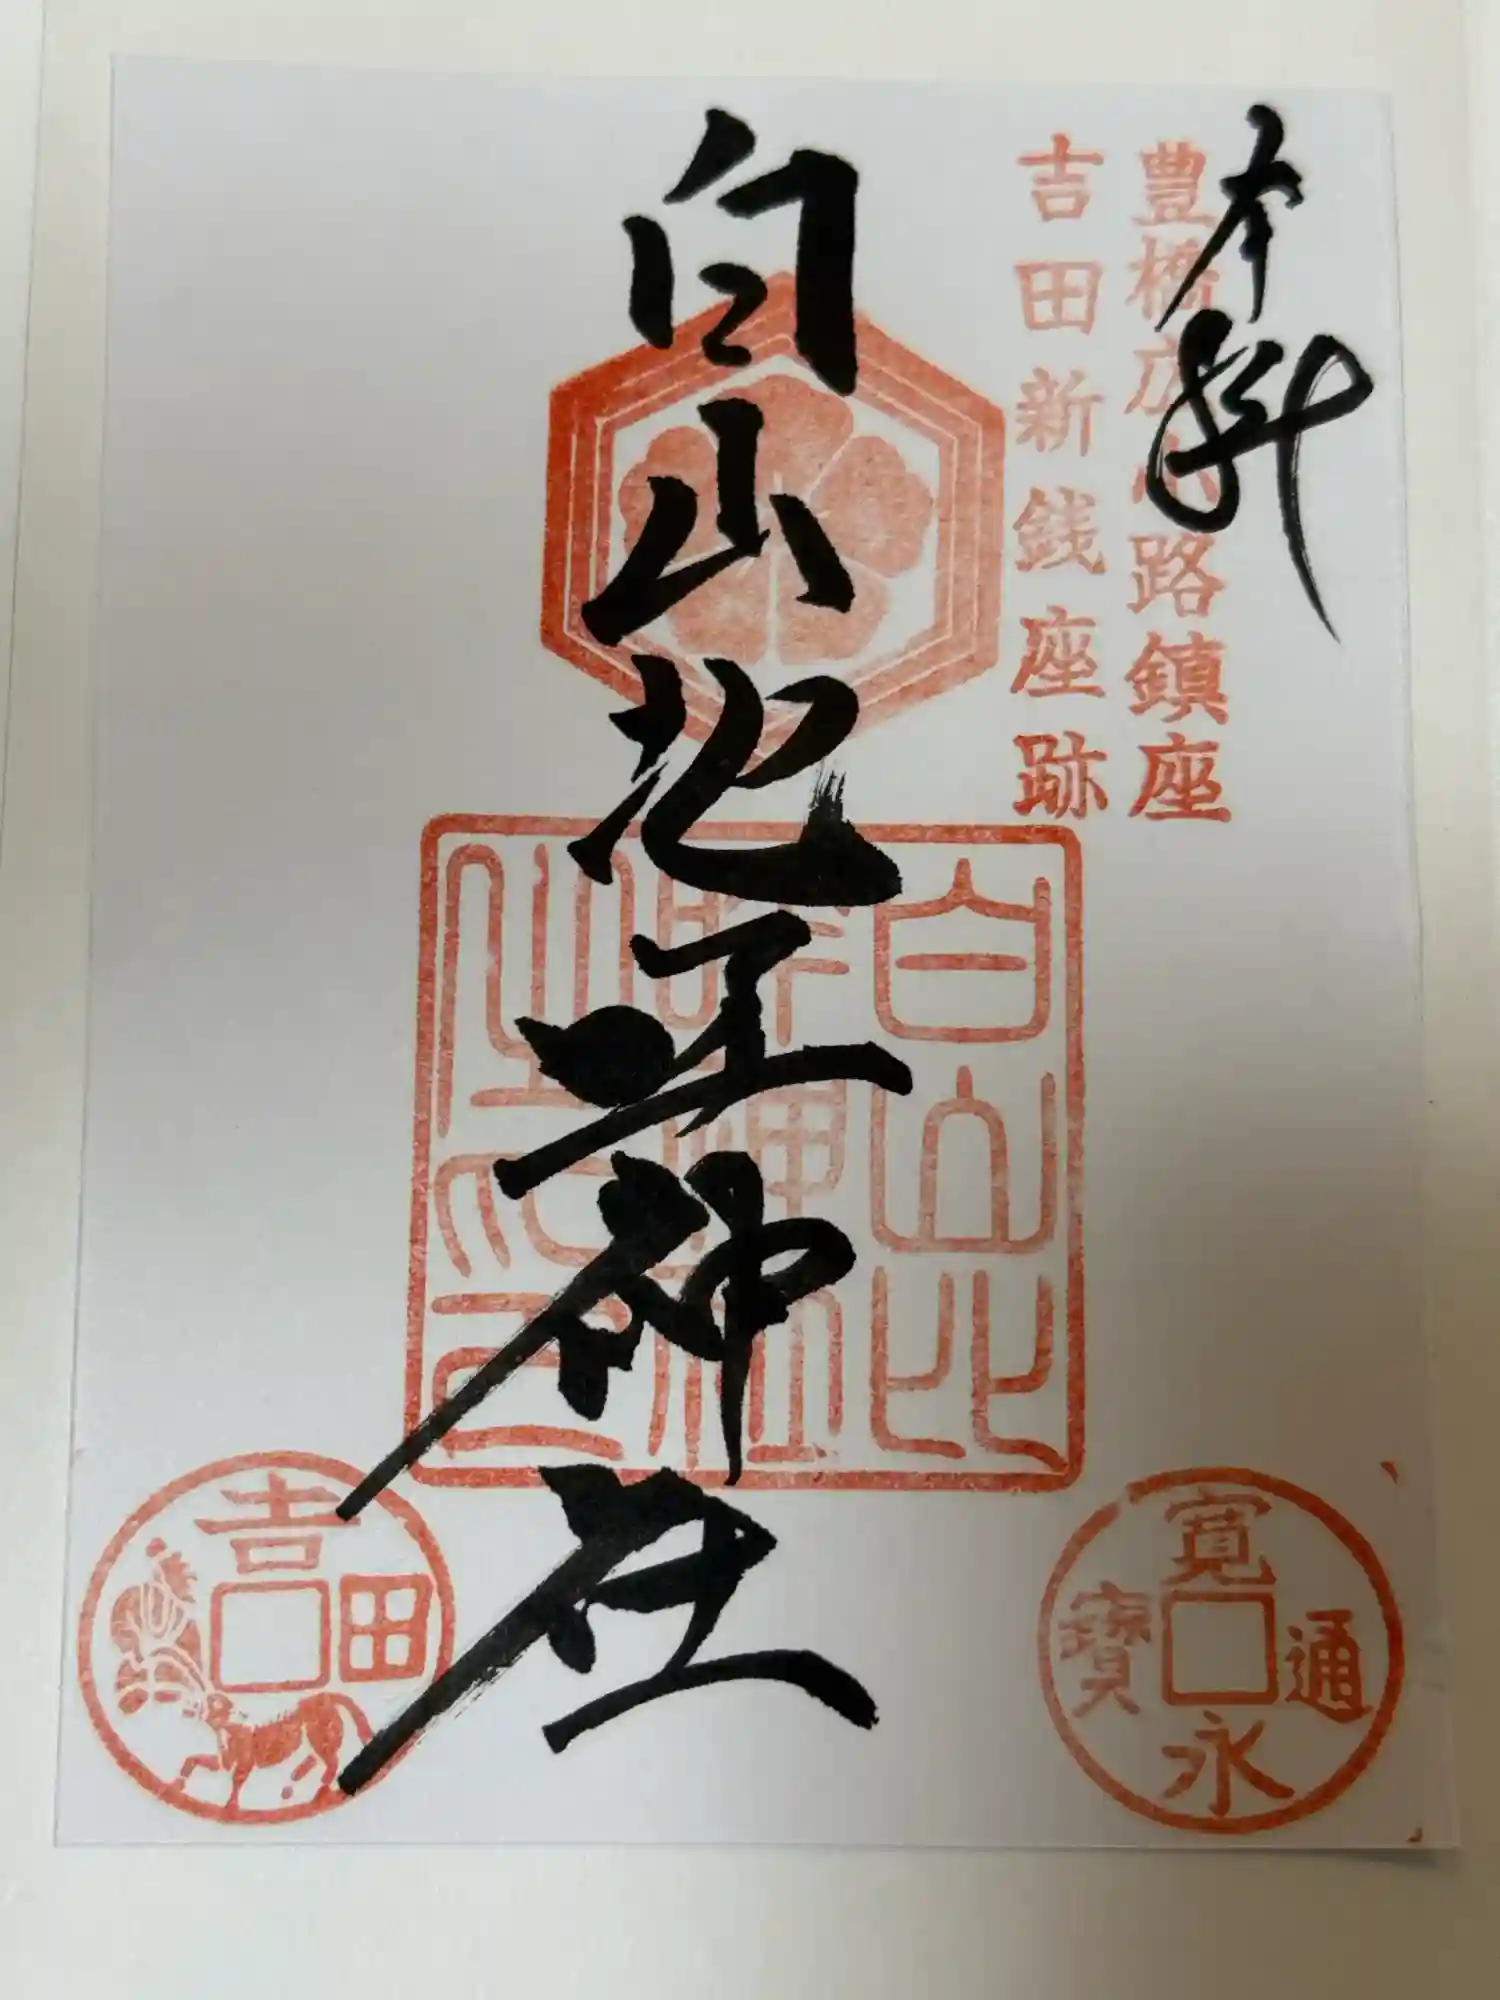 奉拝
豊橋広小路鎮座
吉田新銭座跡
白山比咩神社
白山比
咩神社
之印
寛永通寶
吉田